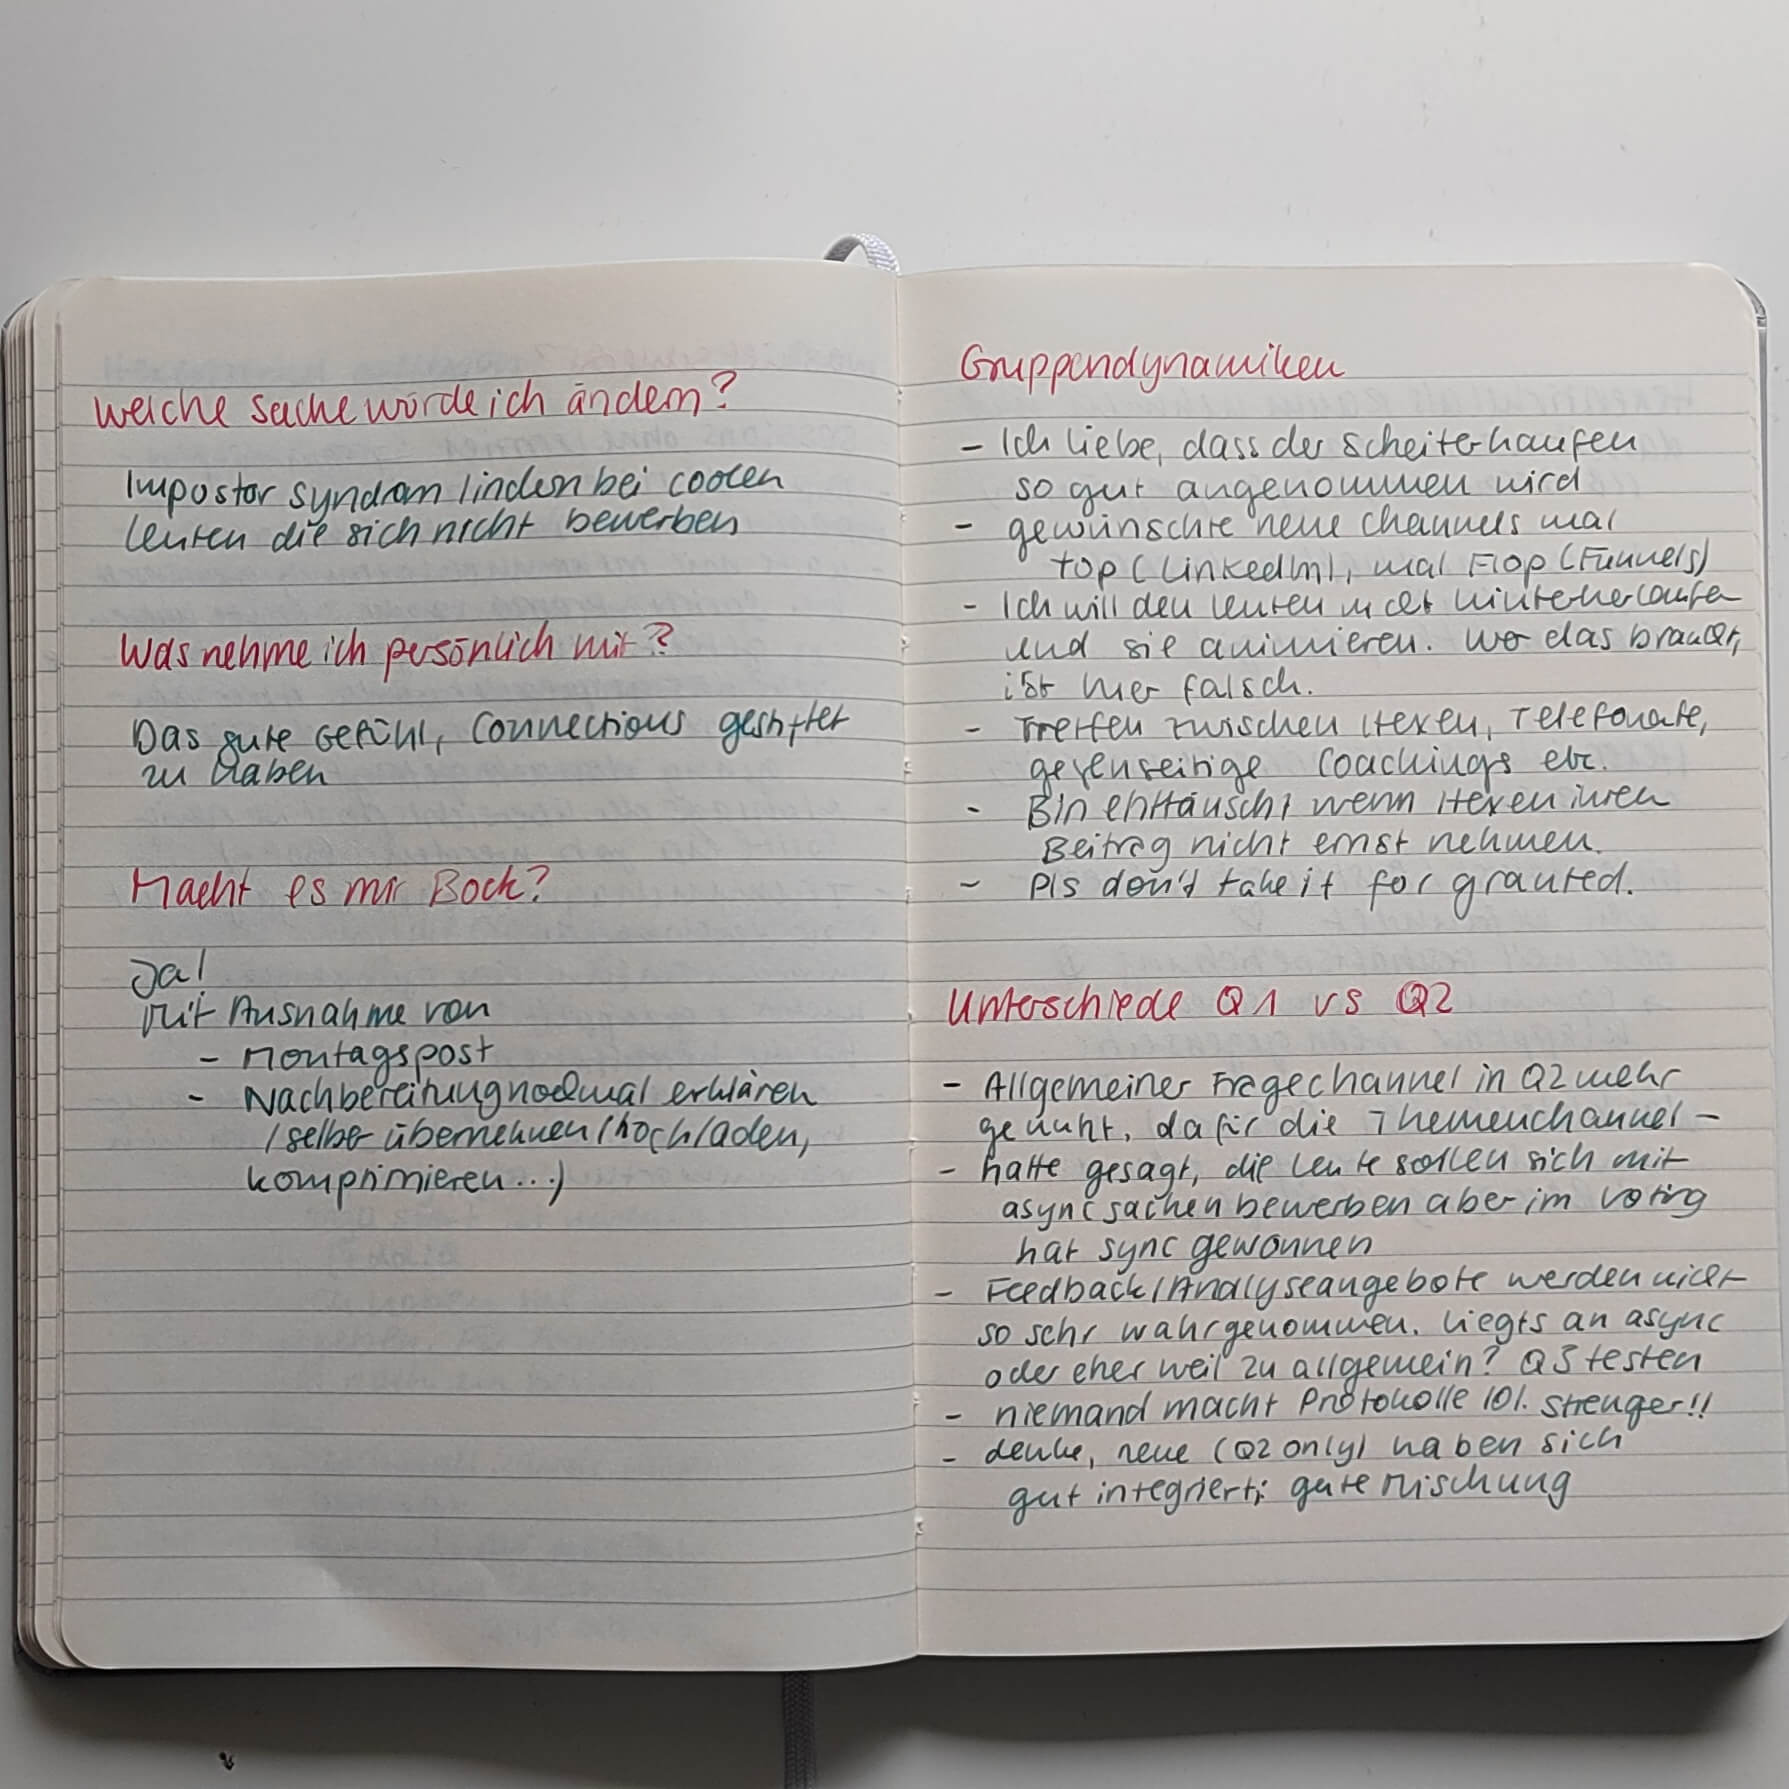 Welche Sache würde ich ändern?
Impostor Syndrom lindern bei coolen
Leuten die sich nicht bewerben
Was nehme ich persönlich mit?
Das gute Gefühl, Connections gestiftet
zu haben
Macht es mir Bock?
Ja!
Mit Ausnahme von
- Montagspost
- Nachbereitung nochmal erklären
/selber übernehmen (hochladen,
komprimieren...)
Gruppendynamiken
- Ich liebe, dass der Scheiterhaufen
so gut angenommen wird
- gewünschte neue Channels mal
top (LinkedIn), mal Flop (Funnels)
- Ich will den Leuten nicht hinterherlaufen
und sie animieren. Wer das braucht,
ist hier falsch.
- Treffen zwischen Hexen, Telefonate,
gegenseitige Coachings etc.
- Bin enttäuscht wenn Hexen ihren
Beitrag nicht ernst nehmen.
- Pls don't take it for granted.
Unterschiede Q1 vs Q2
- Allgemeiner Fragechannel in Q2 mehr
genutzt, dafür die Themenchannel -
- hatte gesagt, die Leute sollen sich mit
async sachen bewerben aber im Voting
hat sync gewonnen
- Feedback/Analyseangebote werden nicht
so sehr wahrgenommen. Liegts an async
oder eher weil zu allgemein? Q3 testen
- niemand macht Protokolle lol. Strenger!!
- denke, neue (Q2 only) haben sich
gut integriert; gute Mischung